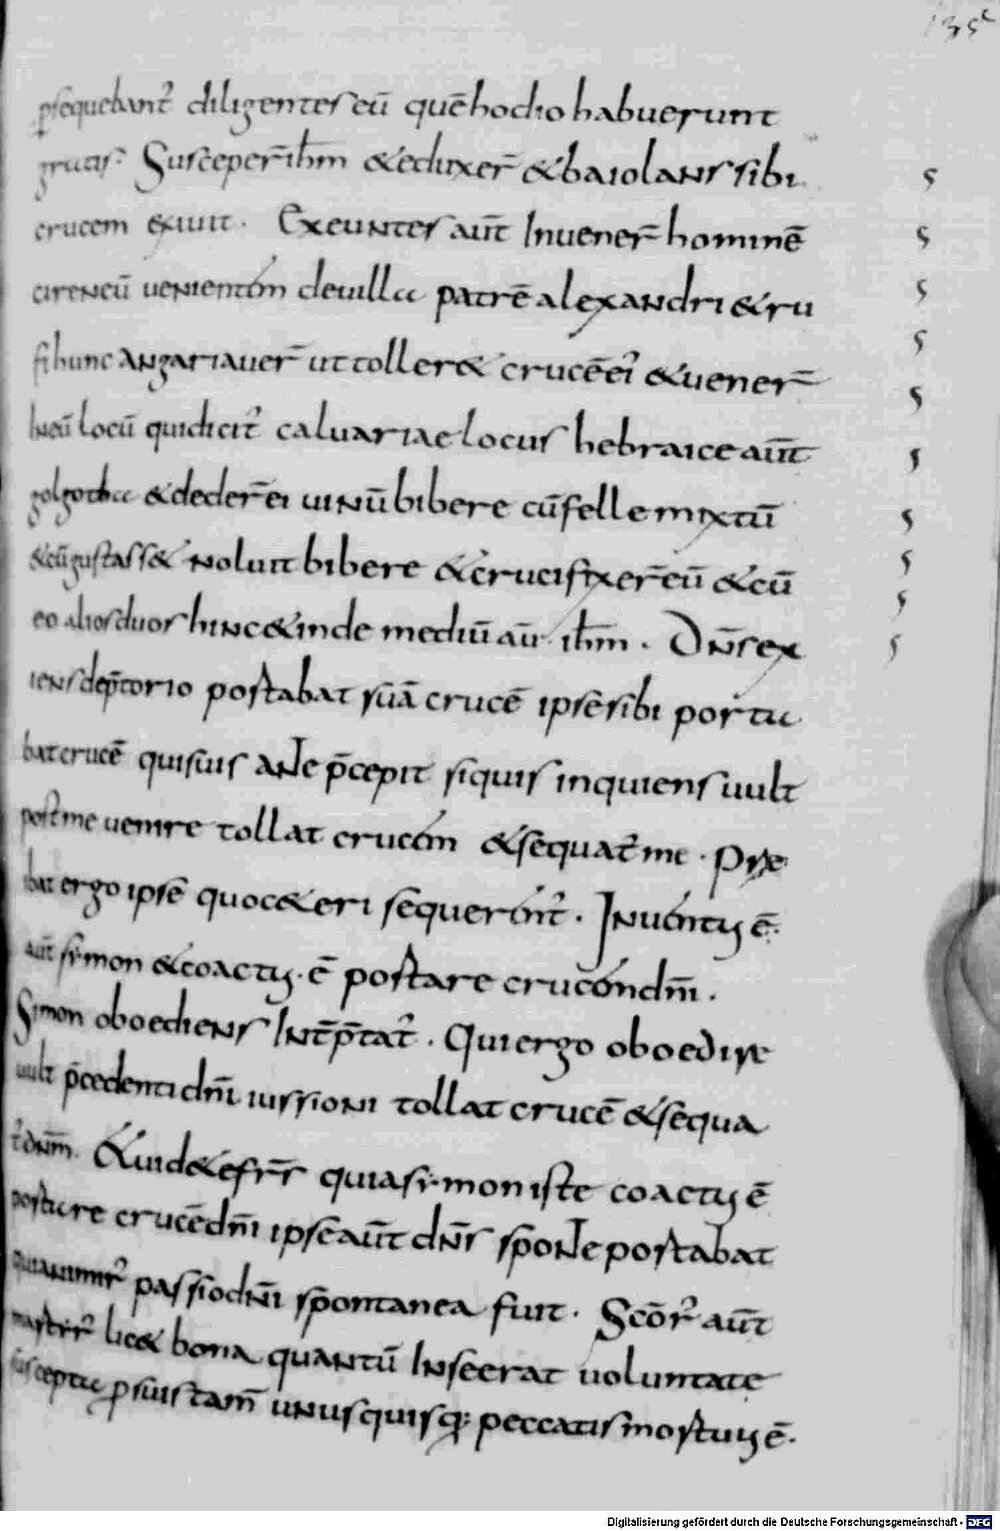 135c
p̱sequebant̉ diligentes eū quē hodio habuerunt
gratis. Susceper̄ ihm̄ & eduxer̄ & baiolans sibi
crucem exiuit. Exeuntes aūt Inuener̄ hominē
cireneū uenientem deuilla patrē alexandri & ru
fi hunc angariauer̄ ut toller& crucē eỉ & uener̄
Ineū locū quidicit̉ caluariae locus hebraice aūt
golgotha & deder̄ ei uinū bibere cū felle mixtū
& cū gustass& noluit bibere & crucifixer̄ eū & cū
eo alios duos hinc & inde mediū aū ihm̄. Dn̄s ex
iens dep̄torio portabat suā crucē ipse sibi porta
bat crucē quisuis ante p̄cepit siquis inquiens uult
post me uenire tollat crucem & sequat̉ me. Prae
ibat ergo ipse quo c&eri sequerent̉. Inuentus ē
aūt symon & coactus ē portare crucem dn̄i.
Simon oboediens Int̄p̄tat̉. Qui ergo oboedire
uult p̄cedenti dn̄i iussioni tollat crucē & sequa
t̉ dn̄m. & uid&e fr̄s quia symon iste coactus ē
portare crucē dn̄i ipse aūt dn̄s sponte portabat
passio dn̄i spontanea fuit. Scōr̉ aūt
lic& bona quantū Inse erat uoluntate
suscepta p̱ suis tam̄ unusquisq; peccatis mortuus ē.
Digitalisierung gefördert durch die Deutsche Forschungsgemeinschaft - DFG